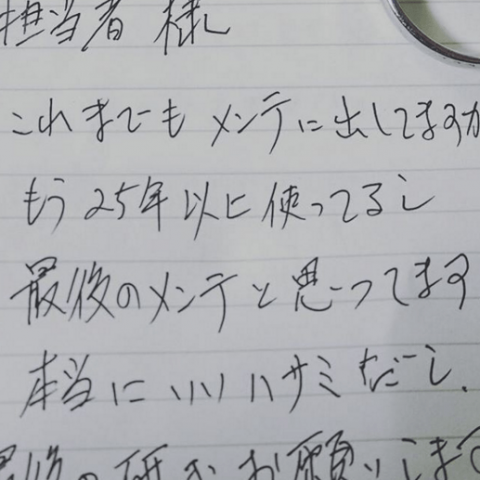 担当者 様
これまでもメンテに出してますが
もう25年以上使ってるし
最後のメンテと思ってます
本当にいいハサミだーし、
最後の研ぎお願いします